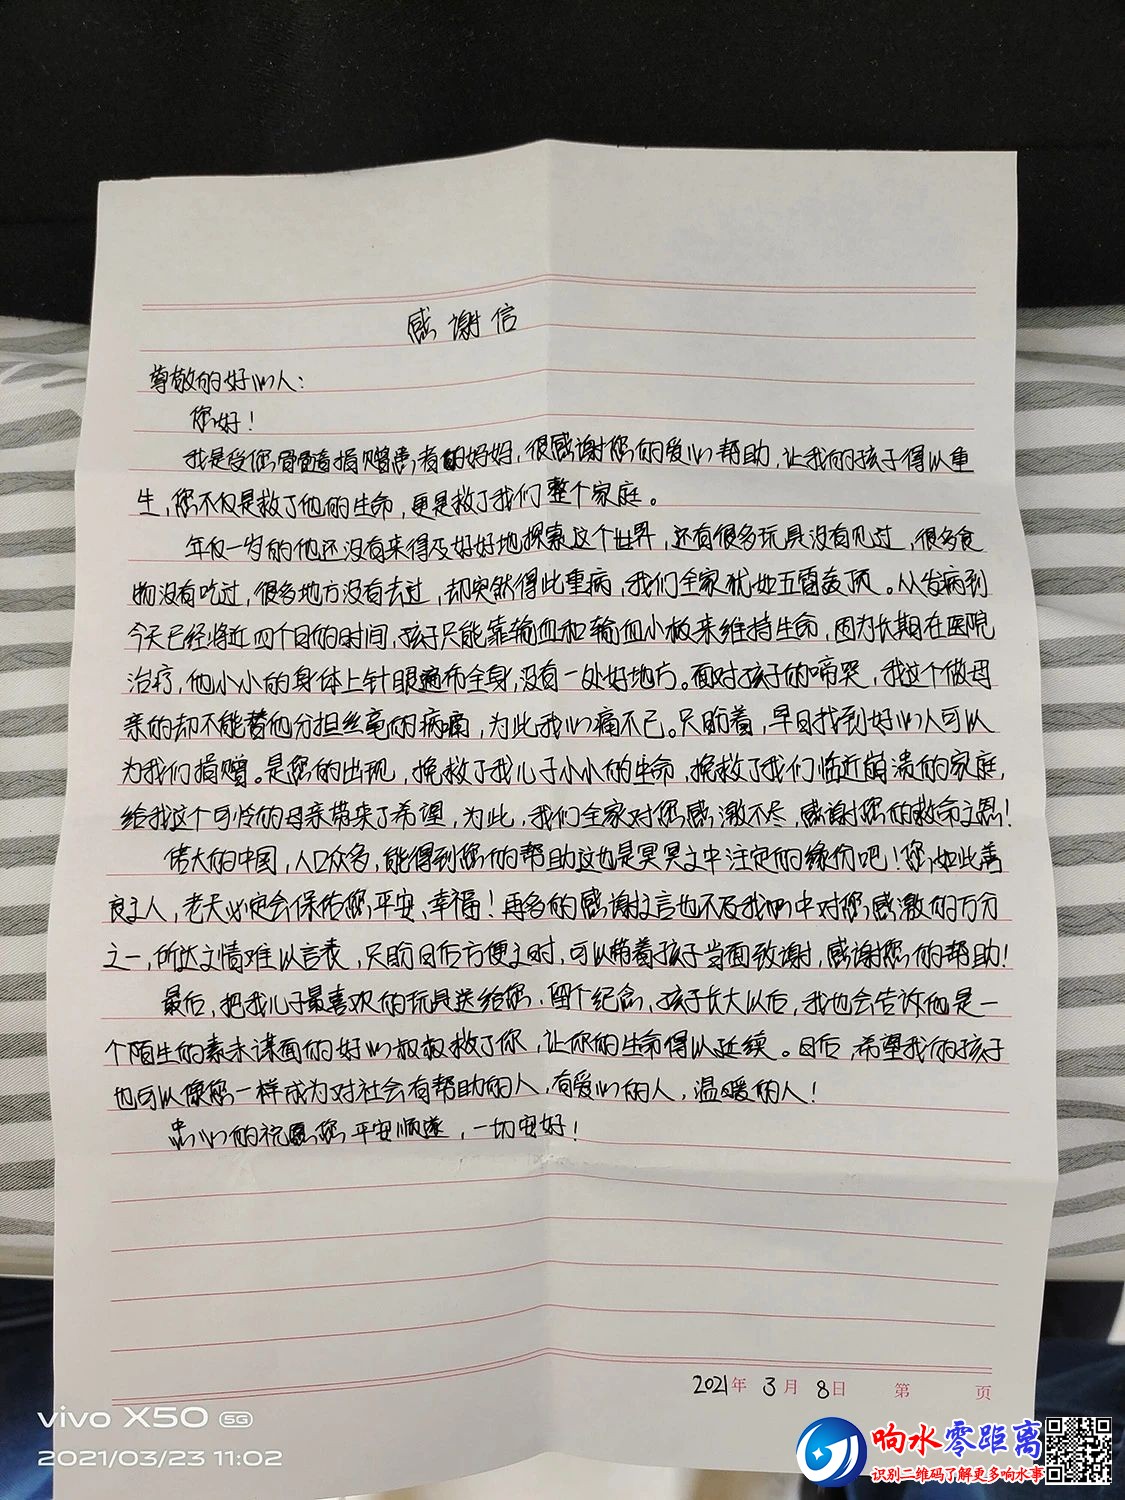 感谢信
尊敬的好心人：
您好！
我是受您骨髓捐赠患者的妈妈，很感谢您的爱心帮助，让我的孩子得以重
生，您不仅是救了他的生命，更是救了我们整个家庭。
年仅一岁的他还没有来得及好好地探索这个世界，还有很多玩具没有见过，很多食
物没有吃过，很多地方没有去过，却突然得此重病，我们全家犹如五雷轰顶。从发病到
今天已经将近四个月的时间，孩子只能靠输血和输血小板来维持生命，因为长期在医院
治疗，他小小的身体上针眼遍布全身，没有一处好地方。面对孩子的啼哭，我这个做母
亲的却不能替他分担丝毫的病痛，为此我心痛不已。只盼着，早日找到好心人可以
为我们捐赠。是您的出现，挽救了我儿子小小的生命，挽救了我们临近崩溃的家庭，
给我这个可怜的母亲带来了希望，为此，我们全家对您感激不尽，感谢您的救命之恩！
伟大的中国，人口众多，能得到您的帮助这也是冥冥之中注定的缘份吧！您，如此善
良之人，老天必定会保佑您平安、幸福！再多的感谢之言也不及我们心中对您感激的万分
之一，所达之情难以言表，只盼日后方便之时，可以带着孩子当面致谢，感谢您的帮助！
最后，把我儿子最喜欢的玩具送给您，留个纪念，孩子长大以后，我也会告诉他是一
个陌生的素未谋面的好心叔叔救了你，让你的生命得以延续。日后，希望我的孩子
也可以像您一样成为对社会有帮助的人，有爱心的人，温暖的人！
忠心的祝愿您平安顺遂，一切安好！
2021年 3月 8日 第 页
vivo X50 5G
2021/03/23 11:02
响水零距离
识别二维码了解更多响水事